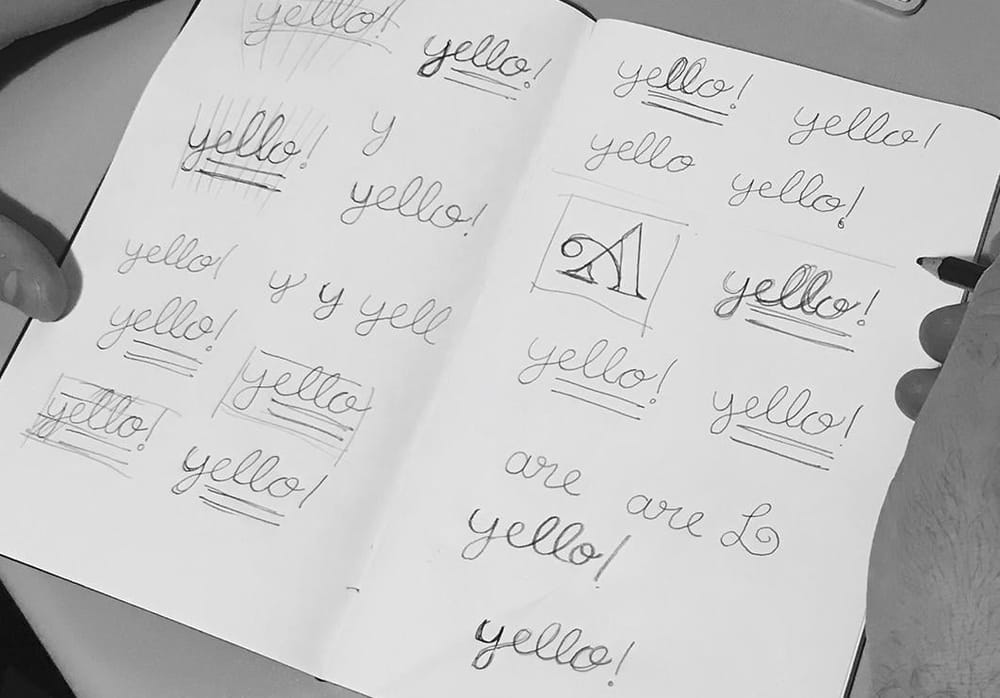 yello!
yello!
yello!
y
yello!
yello!
y y yell
yello!
yello
yello!
yello!
yello!
yello!
yello
yello!
A
yello!
yello!
yello!
are
are L
yello!
yello!